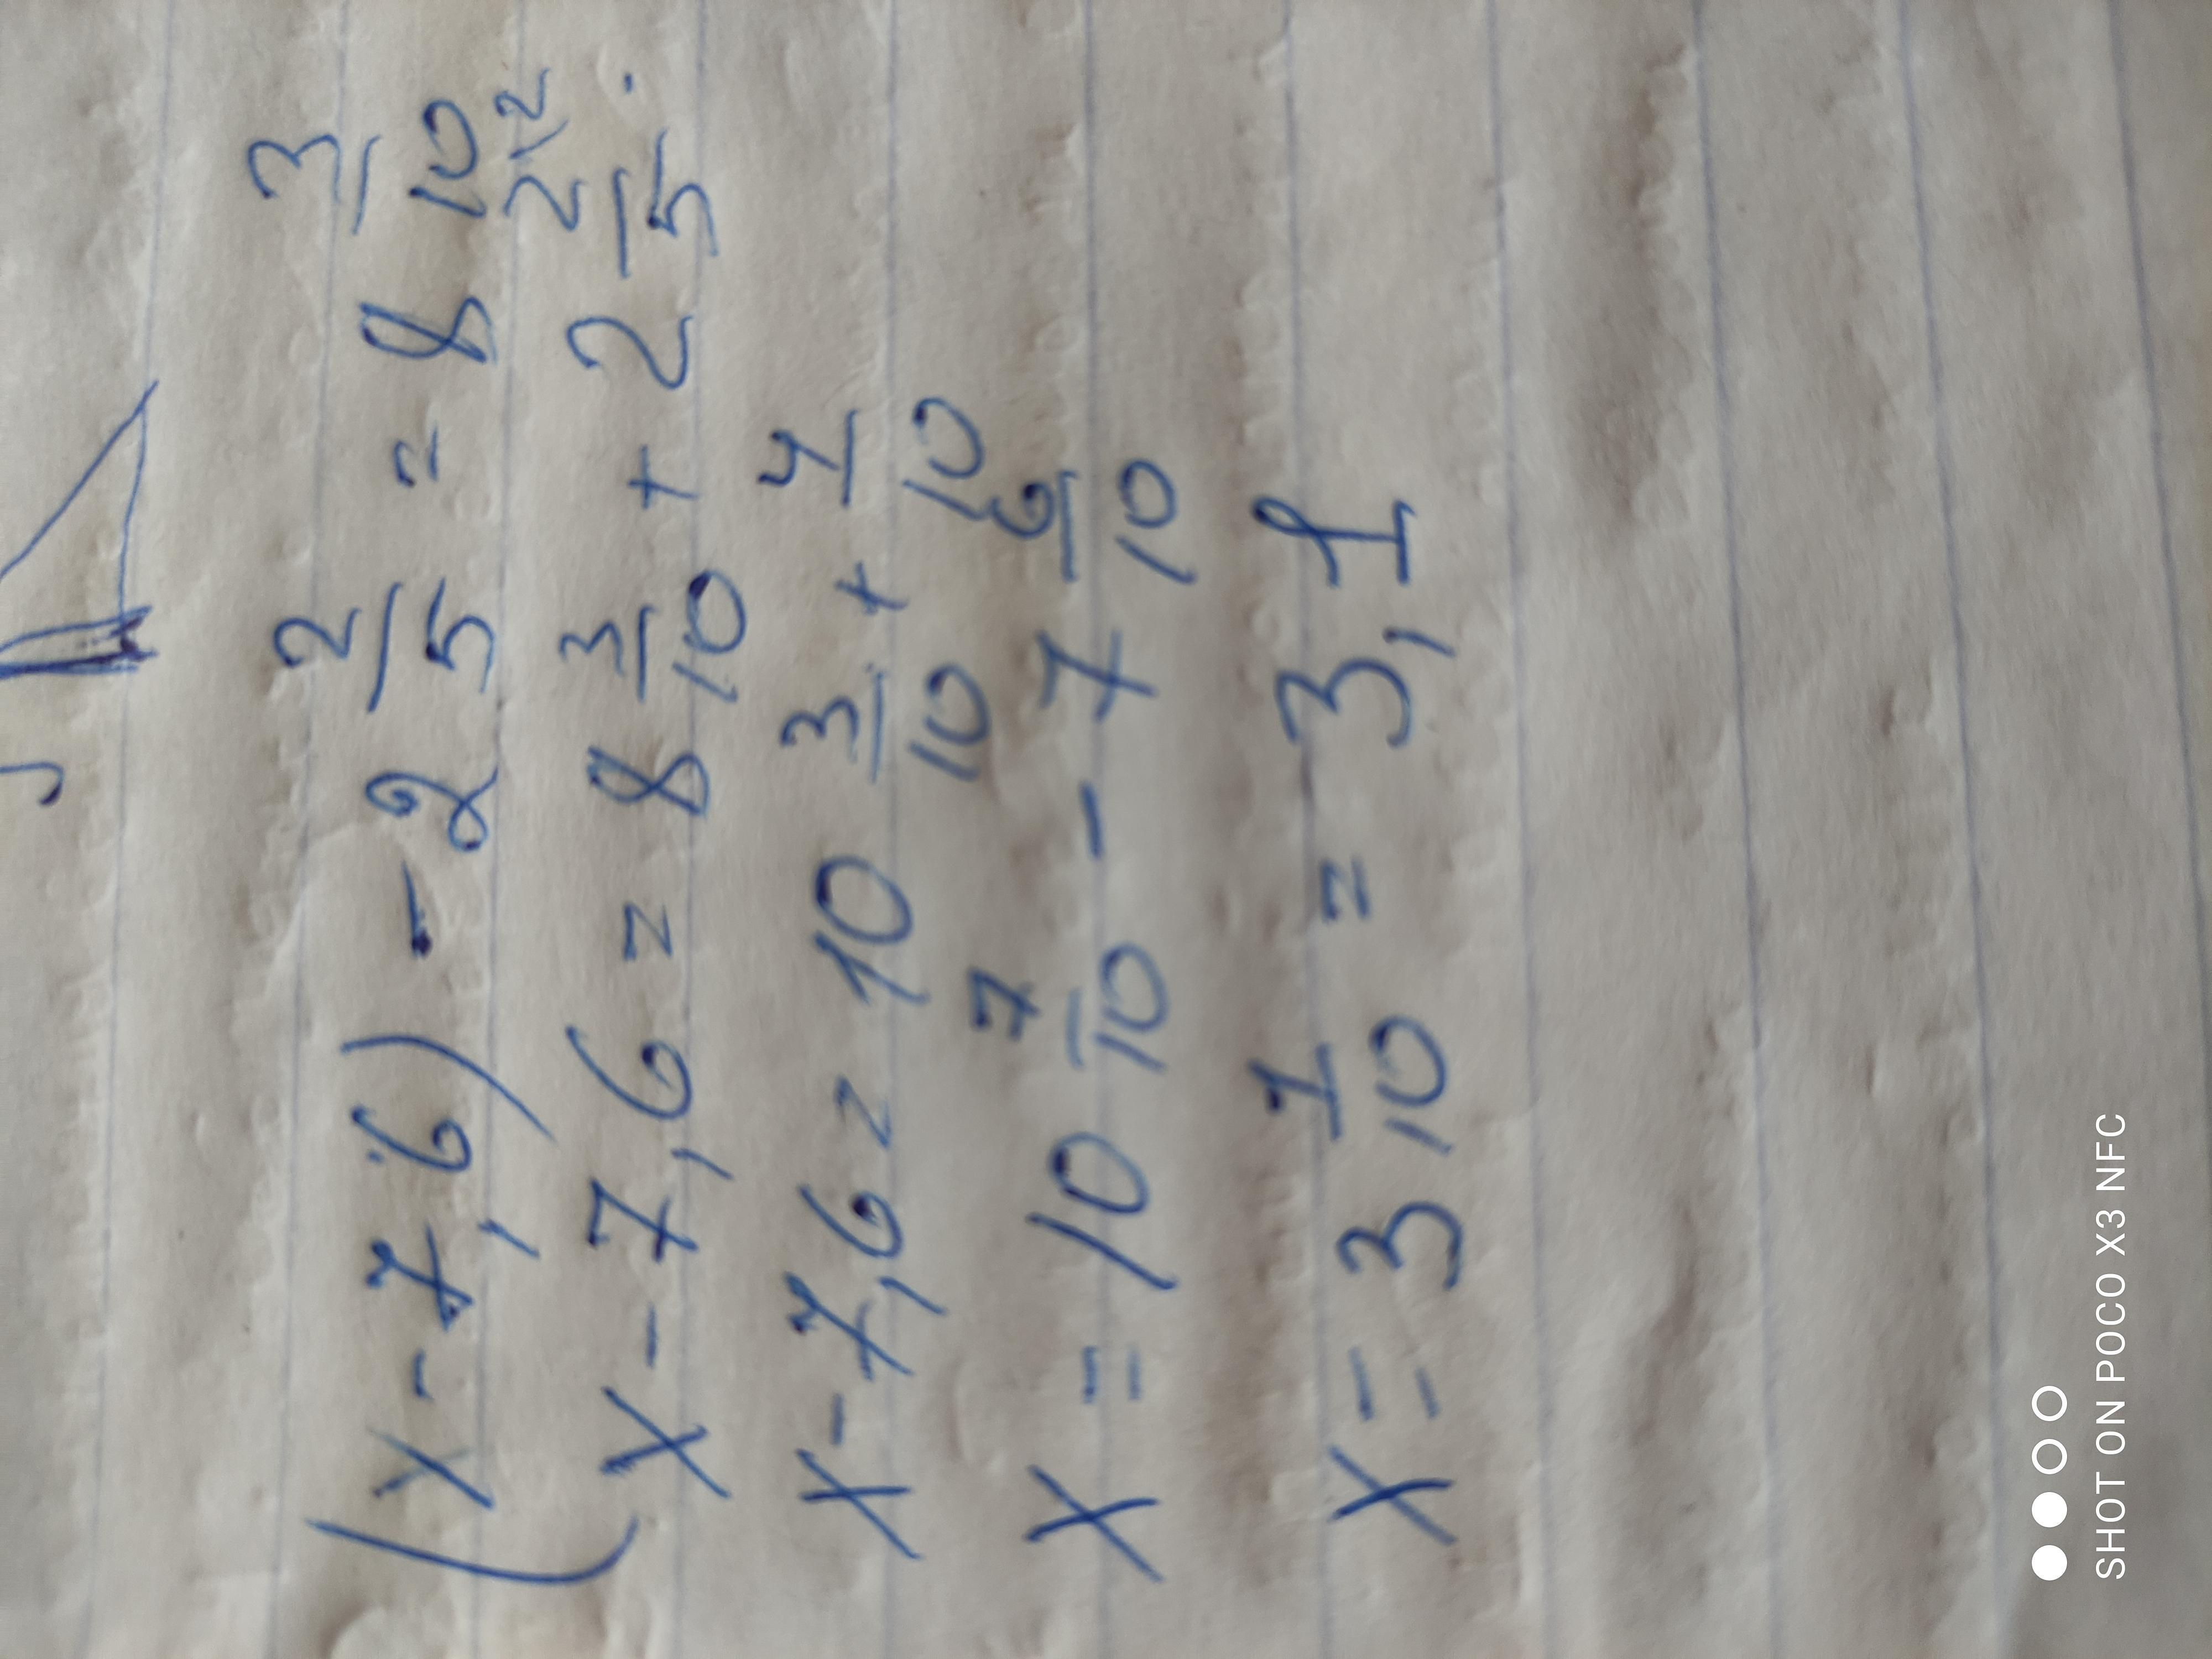 (x - 7,6) - 2 2/5 = 8 3/10
x - 7,6 = 8 3/10 + 2 2\2/5.
x - 7,6 = 10 3/10 + 4/10
x = 10 7/10 - 7 6/10
x = 3 1/10 = 3,1
SHOT ON POCO X3 NFC